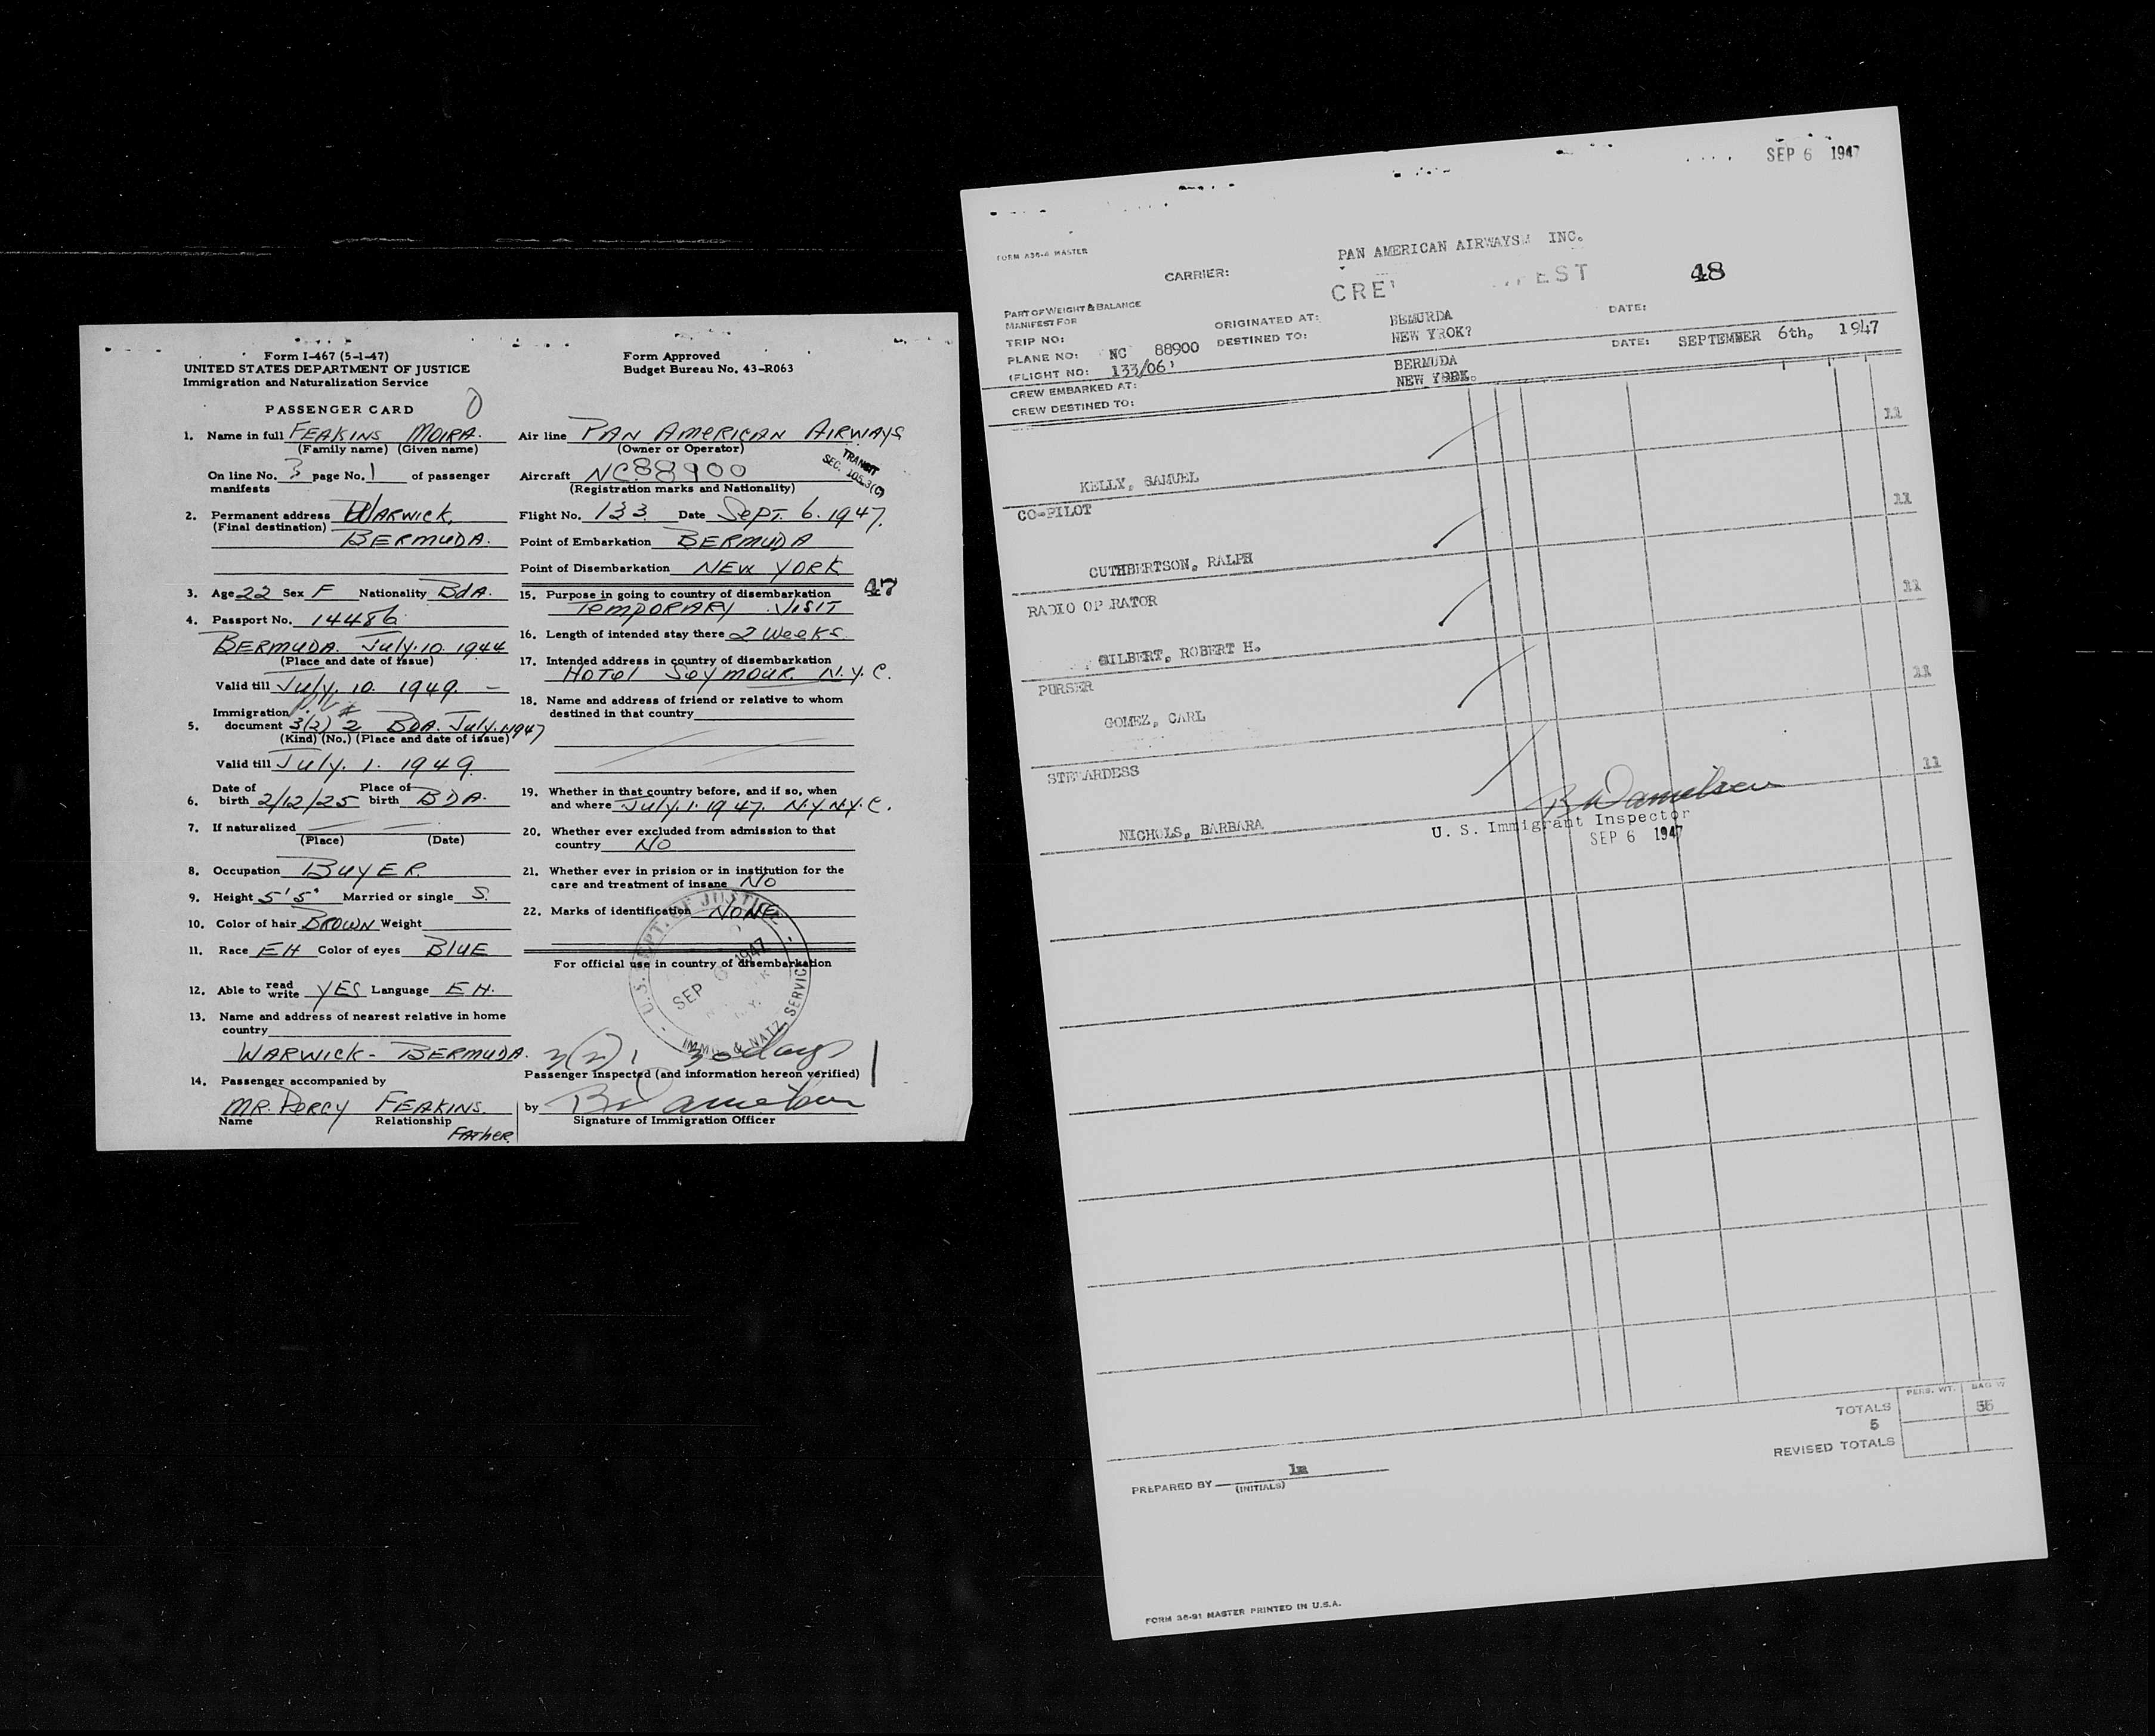 Form I-467 (5-1-47)
UNITED STATES DEPARTMENT OF JUSTICE
Immigration and Naturalization Service
Form Approved
Budget Bureau No. 43-R063
PASSENGER CARD
1. Name in full FEAKINS MOIRA.
(Family name) (Given name)
On line No. 3 page No. 1 of passenger
manifests
2. Permanent address WARWICK,
(Final destination)
BERMUDA.
3. Age 22 Sex F Nationality BdA.
4. Passport No. 14486
BERMUDA. July.10. 1944
(Place and date of issue)
Valid till July. 10. 1949. —
Immigration
5. document 3(2) 2 BDA. July.1.1947
(Kind) (No.) (Place and date of issue)
Valid till July. 1. 1949.
6. Date of birth 2/12/25 Place of birth BDA.
7. If naturalized
(Place) (Date)
8. Occupation BUYER.
9. Height 5'5" Married or single S.
10. Color of hair BROWN Weight
11. Race EH Color of eyes BLUE
12. Able to read write YES Language EH.
13. Name and address of nearest relative in home
country
WARWICK - BERMUDA.
14. Passenger accompanied by
MR. PERCY FEAKINS.
Name Relationship
FATHER.
Air line PAN AMERICAN AIRWAYS
(Owner or Operator)
TRANSIT
SEC. 105.3(C)
Aircraft NC88900
(Registration marks and Nationality)
Flight No. 133 Date Sept. 6. 1947.
Point of Embarkation BERMUDA
Point of Disembarkation NEW YORK
47
15. Purpose in going to country of disembarkation
TEMPORARY VISIT
16. Length of intended stay there 2 Weeks.
17. Intended address in country of disembarkation
HOTEL SEYMOUR N.Y.C.
18. Name and address of friend or relative to whom
destined in that country
19. Whether in that country before, and if so, when
and where July.1.1947. N.Y N.Y.C.
20. Whether ever excluded from admission to that
country NO
21. Whether ever in prision or in institution for the
care and treatment of insane NO
22. Marks of identification NONE
For official use in country of disembarkation
U.S. DEPT. OF JUSTICE
SEP 6 1947
IMMIG. & NATZ. SERVICE
3(2) 1 30 days
Passenger inspected (and information hereon verified)
by
Signature of Immigration Officer
SEP 6 1947
FORM A36-6 MASTER
CARRIER: PAN AMERICAN AIRWAYS INC.
48
PART OF WEIGHT & BALANCE
MANIFEST FOR
TRIP NO: ORIGINATED AT: BEMURDA DATE:
PLANE NO: NC 88900 DESTINED TO: NEW YROK? DATE: SEPTEMBER 6th, 1947
(FLIGHT NO: 133/06'
CREW EMBARKED AT: BERMUDA
CREW DESTINED TO: NEW YORK.
11
KELLY, SAMUEL
CO-PILOT
11
CUTHBERTSON, RALPH
RADIO OP RATOR
11
GILBERT, ROBERT H.
PURSER
11
GOMEZ, CARL
STEWARDESS
11
NICHOLS, BARBARA
U. S. Immigrant Inspector
SEP 6 1947
PERS. WT. BAG W
TOTALS 55
5
REVISED TOTALS
PREPARED BY lm
(INITIALS)
FORM 36-91 MASTER PRINTED IN U.S.A.